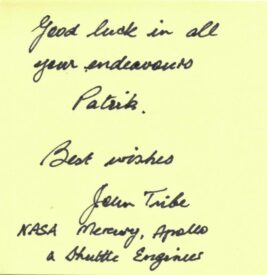 Good luck in all
your endeavours
Patrik.
Best wishes
John Tribe
NASA Mercury, Apollo
& Shuttle Engineer